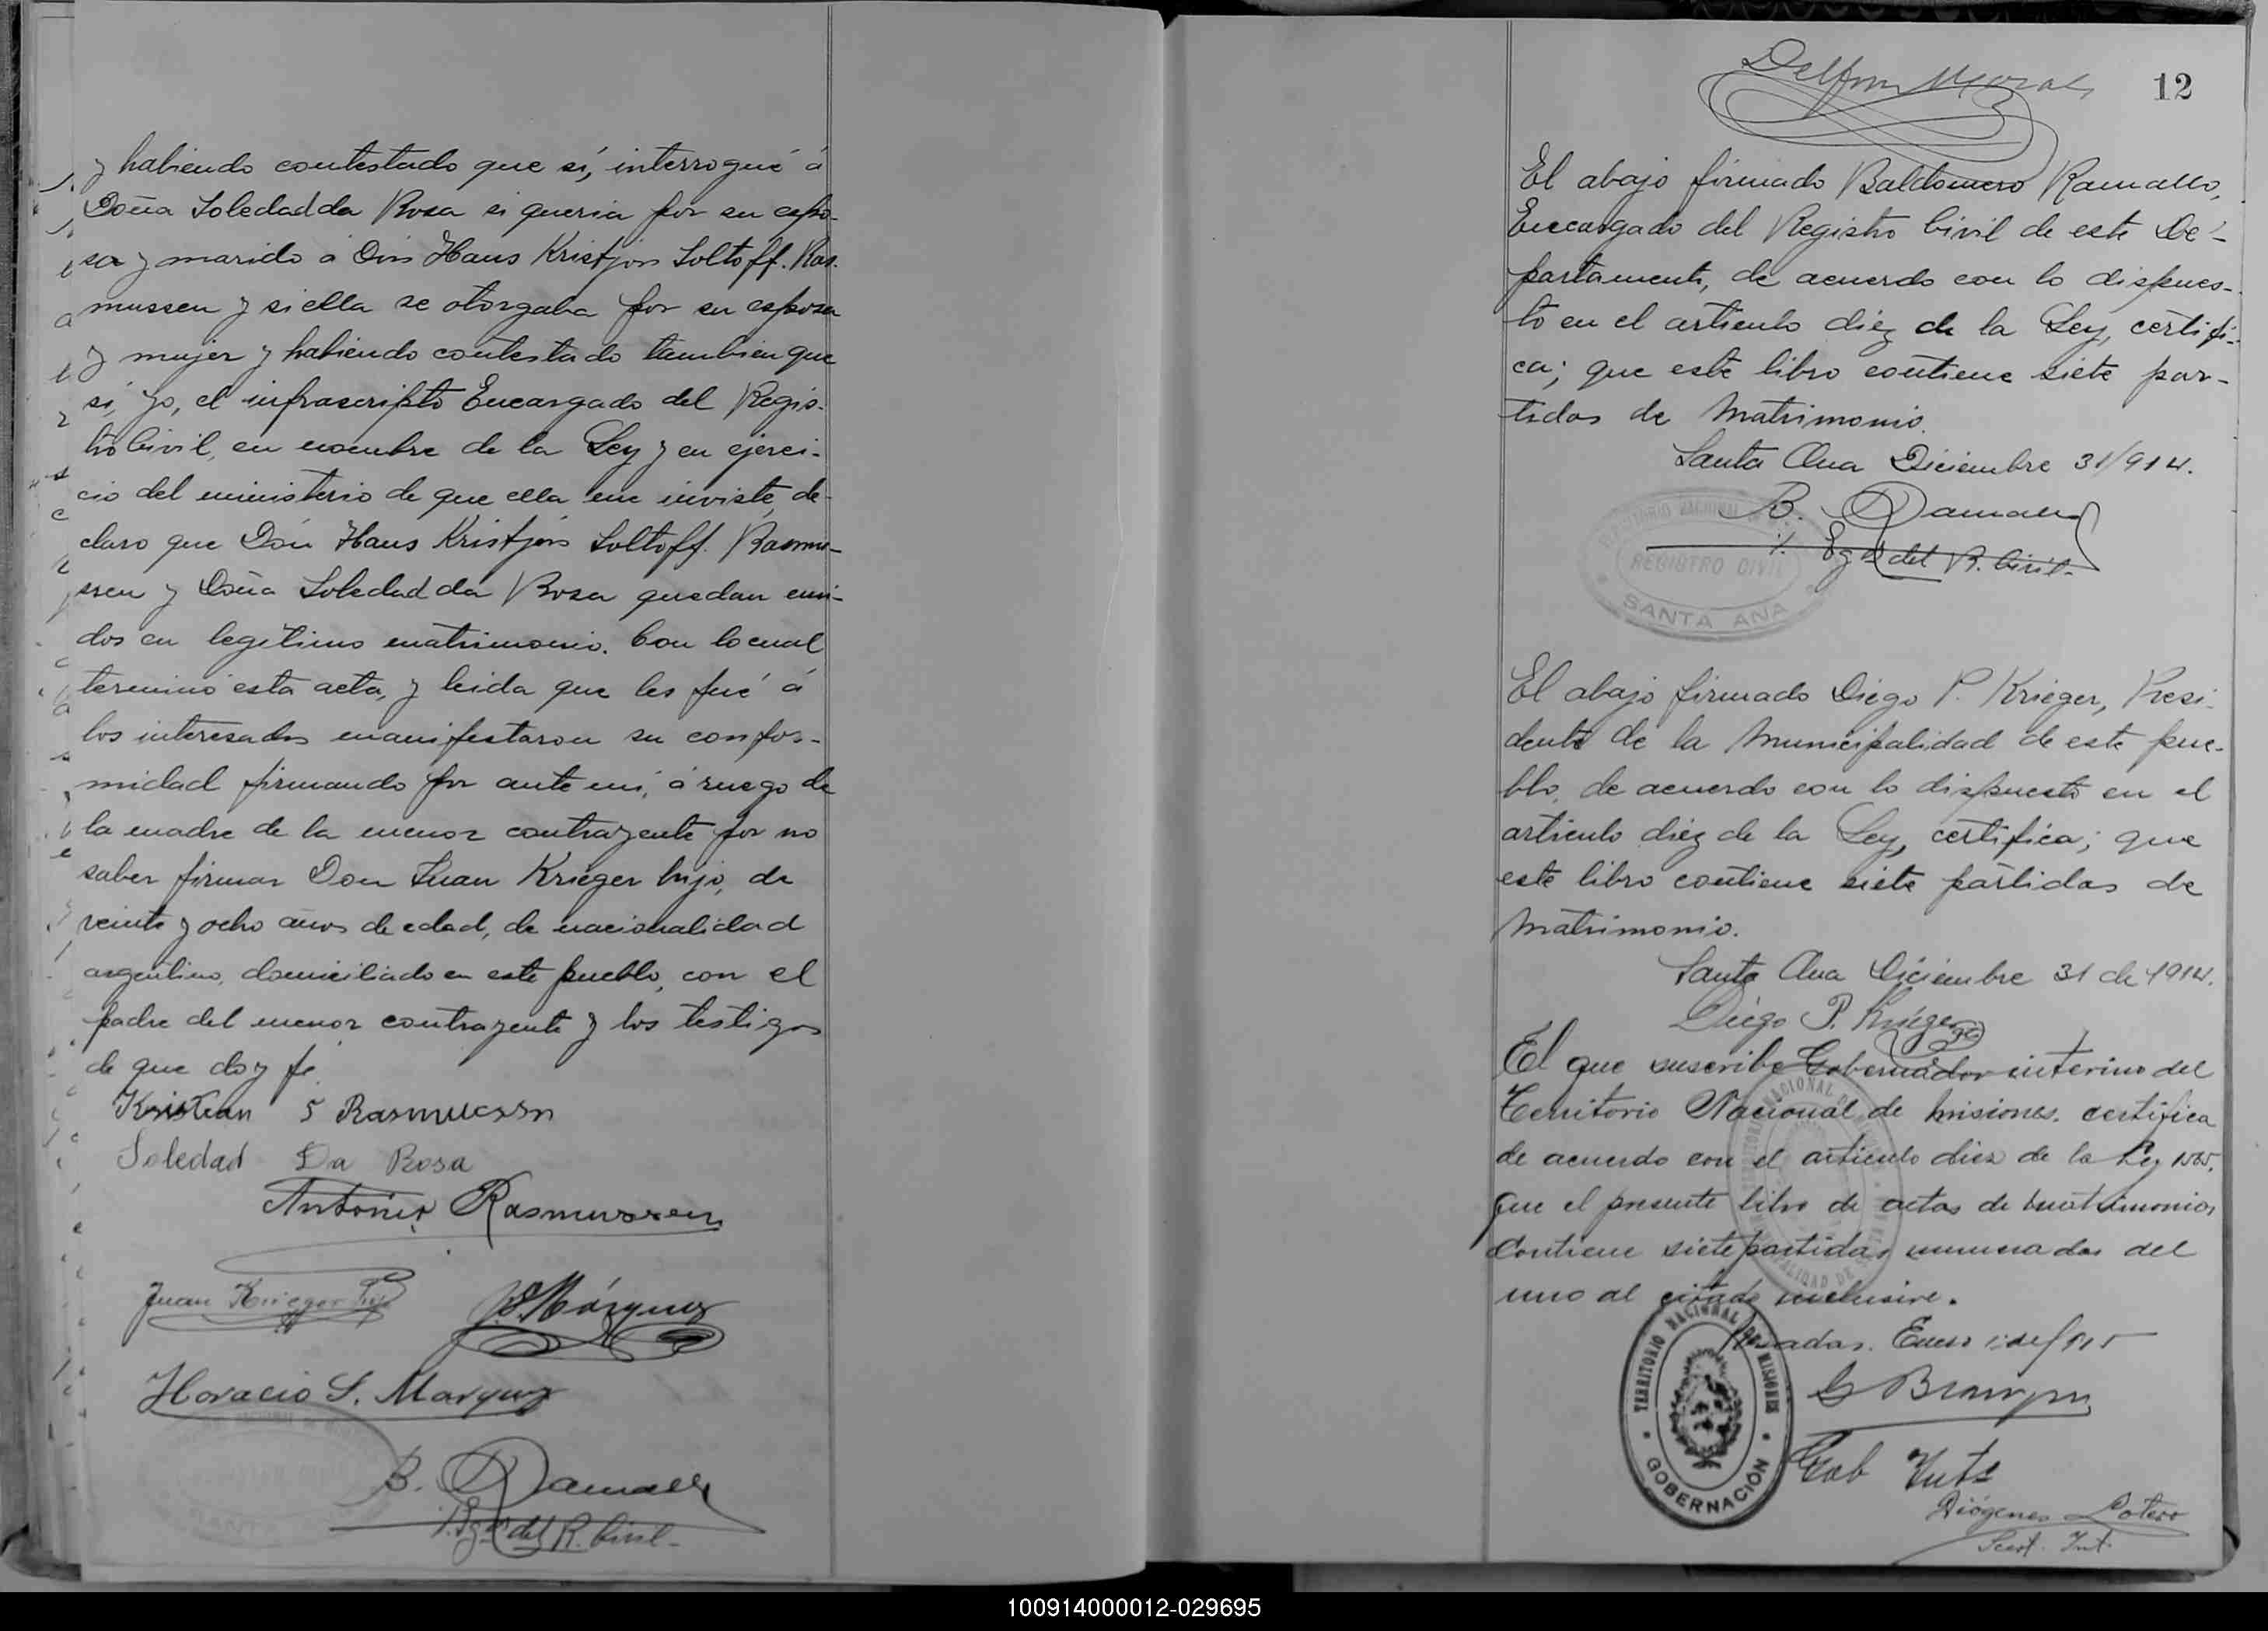 y habiendo contestado que sí, interrogué á
Doña Soledad da Rosa si queria por su espo-
so y marido á Don Haus Kristjon Soltoff. Ras-
mussen y si ella se otorgaba por su esposa
y mujer y habiendo contestado tambien que
si, yo, el infrascripto Encargado del Regis-
tro Civil, en nombre de la Ley y en ejerci-
cio del ministerio de que ella me inviste, de-
claro que Don Haus Kristjon Soltoff. Rasmu-
ssen y Doña Soledad da Rosa quedan uni-
dos en legitimo matrimonio. Con lo cual
terminó esta acta, y leida que les fué á
los interesados manifestaron su confor-
midad firmando por ante mi, á ruego de
la madre de la menor contrayente por no
saber firmar Don Juan Krieger hijo, de
veinte y ocho años de edad, de nacionalidad
argentino, domiciliado en este pueblo, con el
padre del menor contrayente y los testigos
de que doy fe.
Kristian S Rasmussen
Soledad Da Rosa
Antonio Rasmussen
Juan Krieger hijo
Márquez
Horacio S. Marquez
B. Ramallo
del R. Civil-
12
El abajo firmado Baldomero Ramallo,
Encargado del Registro Civil de este De-
partamento, de acuerdo con lo dispues-
to en el articulo diez de la Ley, certifi-
ca; que este libro contiene siete par-
tidas de Matrimonio.
Santa Ana Diciembre 31/914.
B. Ramallo
del R. Civil-
REGISTRO CIVIL
SANTA ANA
El abajo firmado Diego P. Krieger, Presi-
dente de la Municipalidad de este pue-
blo, de acuerdo con lo dispuesto en el
articulo diez de la Ley, certifica; que
este libro contiene siete partidas de
Matrimonio.
Santa Ana Diciembre 31 de 1914.
Diego P. Krieger
El que suscribe Gobernador interino del
Territorio Nacional de Misiones, certifica
de acuerdo con el articulo diez de la Ley 1565,
que el presente libro de actas de matrimonios
contiene siete partidas numeradas del
uno al citado inclusive.
Posadas. Enero 1º de/915
Gob Int
TERRITORIO NACIONAL DE MISIONES
GOBERNACIÓN
Diógenes Lotero
Secret. Int.
100914000012-029695